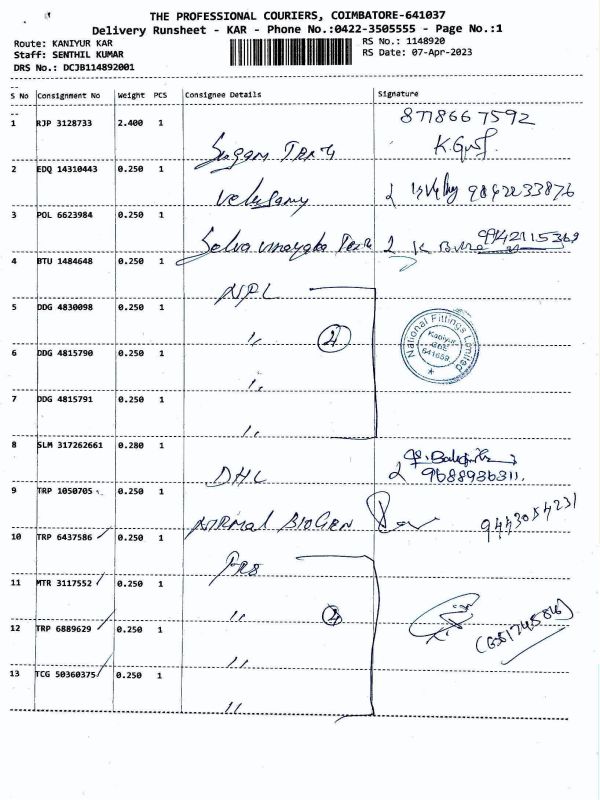 THE PROFESSIONAL COURIERS, COIMBATORE-641037
Delivery Runsheet - KAR - Phone No.:0422-3505555 - Page No.:1
Route: KANIYUR KAR
RS No.: 1148920
Staff: SENTHIL KUMAR
RS Date: 07-Apr-2023
DRS No.: DCJB114892001
S No Consignment No Weight PCS Consignee Details Signature
1 RJP 3128733 2.400 1 8778667592
Sugam Tex
2 EDQ 14310443 0.250 1
Velusamy 9842233876
3 POL 6623984 0.250 1
Selva vinayaka Tex 9942115369
4 BTU 1484648 0.250 1
NPL
5 DDG 4830098 0.250 1
" 4
National Fittings Limited
Kaniyur
CBE
641659.
6 DDG 4815790 0.250 1
"
7 DDG 4815791 0.250 1
"
8 SLM 317262661 0.280 1
DHL 9688936311.
9 TRP 1050705 0.250 1
NIRMAL BIOGEN 9443054231
10 TRP 6437586 0.250 1
11 MTR 3117552 0.250 1
" 4
12 TRP 6889629 0.250 1
"
13 TCG 50360375 0.250 1
"